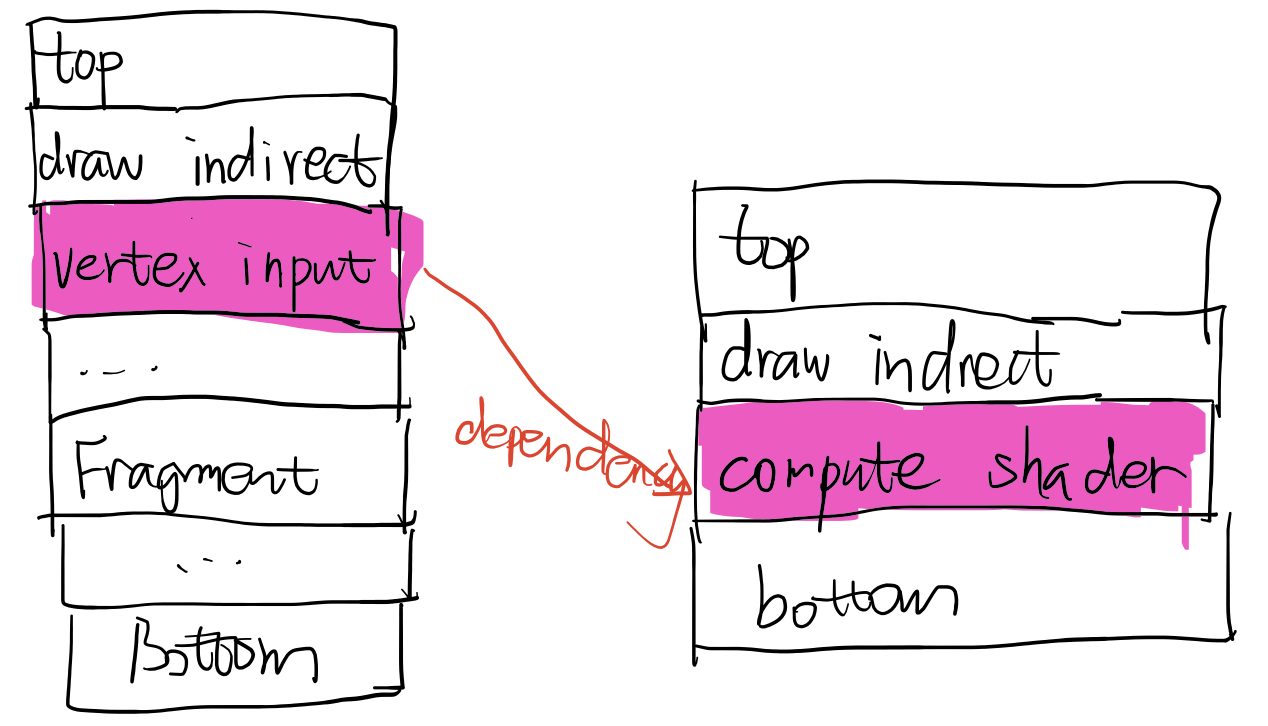 top
draw indirect
vertex input
...
Fragment
...
Bottom
dependency
top
draw indrect
compute shader
bottom